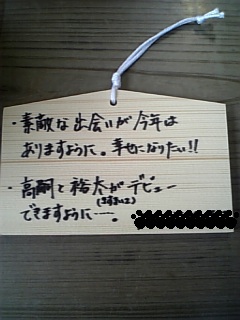 ・素敵な出会いが今年は
ありますように。幸せになりたい!!
・高嗣と裕太がデビュー
できますように……。